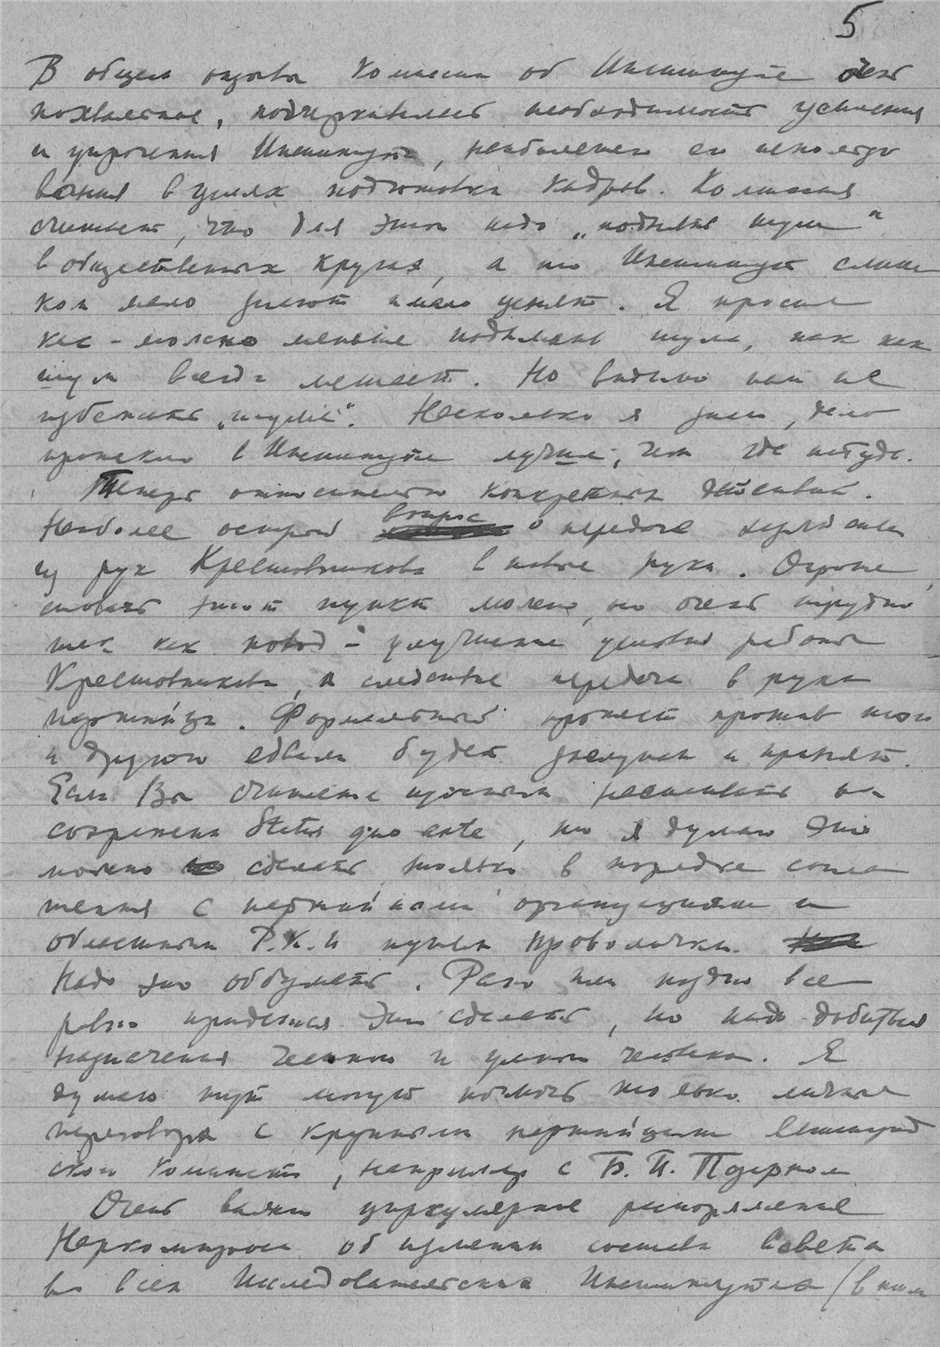 5
В общем отзыв Комиссии об Институте очень
похвальное, подчеркивает необходимость усиления
и упрочения Института, наиболее его использо
вания в целях подготовки кадров. Комиссия
считает, что для этого надо „поднять шум“
в общественных кругах, а то Институт слиш
ком мало знают и мало ценят. Я просил
как-можно меньше поднимать шума, так как
шум всегда мешает. Но видимо нам не
избежать „шума“. Насколько я знаю, дело
в Институте лучше, чем где нибудь.
Теперь относительно конкретных действий.
Наиболее острый вопрос о передаче
из рук Крестовникова в новые руки.
этот пункт можно, но очень трудно
так как повод – улучшение условий работы
Крестовникова, а следствие передача в руки
партийца. Формальный протест против того
и другого едва ли будет заслушан и принят.
Если Вы считаете нужным настаивать на
сохранении Status quo ante, то я думаю это
можно сделать только в порядке согла
шения с партийными организациями и
областным Р.К.И путем проволочки.
Надо это обдумать. Рано или поздно все
равно придется это сделать, но надо добиться
назначения честного и умного человека. Я
думаю тут могут помочь только личные
переговоры с крупными партийцами Ленинград
ского Комитета, например с Б. П. Позерном
Очень важно циркулярное распоряжение
Наркомпроса об изменении состава Совета
во всех Исследовательских Институтах (в том